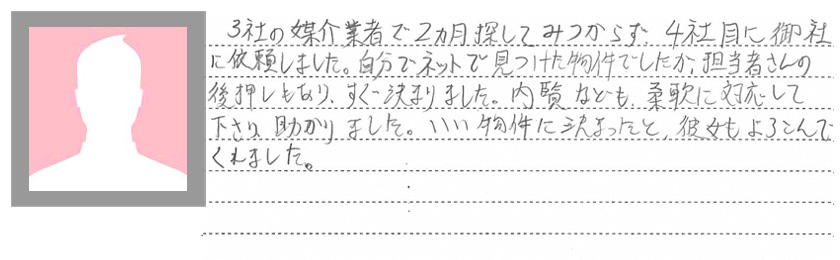 3社の媒介業者で2カ月探してみつからず、4社目に御社
に依頼しました。自分でネットで見つけた物件でしたが、担当者さんの
後押しもあり、すぐ決まりました。内覧なども、柔軟に対応して
下さり、助かりました。いい物件に決まったと、彼女もよろこんで
くれました。